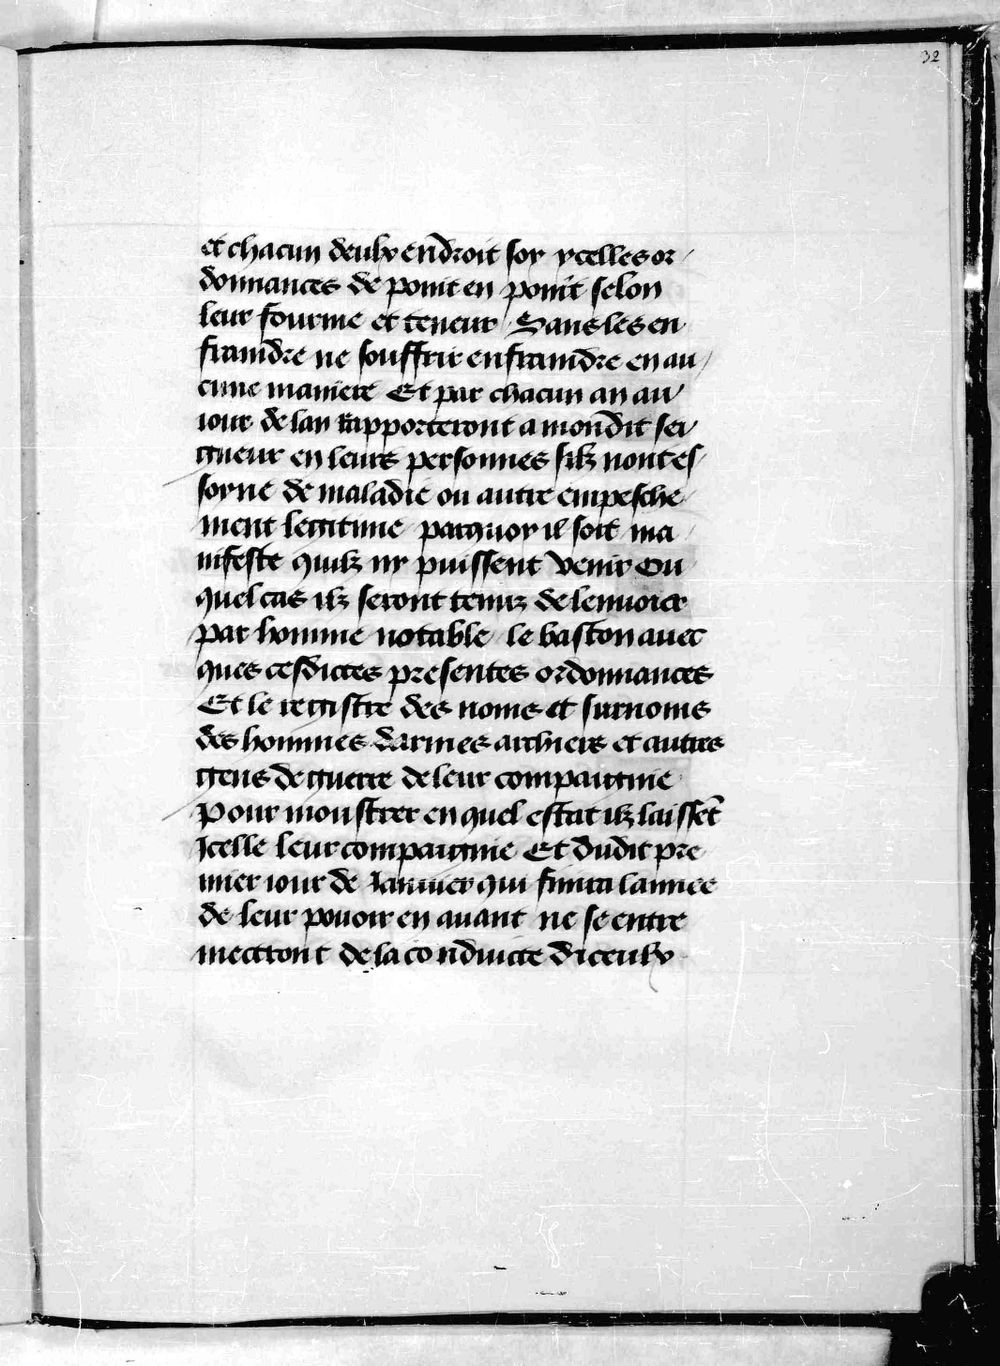 32
et chacun deulx endroit soy ycelles or
donnances de point en point selon
leur fourme et teneur Sans les en
fraindre ne souffrir enfraindre en au
cune maniere Et par chacun an au
iour de lan Rapporteront a mondit sei
gneur en leurs personnes silz nont es
soyne de maladie ou autre empesche
ment legitime parquoy il soit ma
nifeste quilz ny puissent venir Ou
quel cas ilz seront tenuz de lenuoier
par homme notable le baston auec
ques cesdictes presentes ordonnances
Et le registre des noms et surnoms
des hommes darmes archiers et autres
gens de guerre de leur compaignie
Pour monstrer en quel estat ilz laissēt
Icelle leur compaignie Et dudit pre
mier iour de Januier qui finira lannee
de leur pouoir en auant ne se entre
mectront de la conduicte diceulx